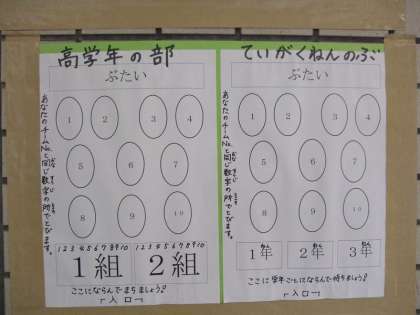 高学年の部
ぶたい
1 2 3 4
5 6 7
8 9 10
あなたのチームNo.と同じ数字の所でとびます。
1 2 3 4 5 6 7 8 9 10 1 2 3 4 5 6 7 8 9 10
1組 2組
ここにならんでまちましょう!
「入口」
ていがくねんのぶ
ぶたい
1 2 3 4
5 6 7
8 9 10
あなたのチームNo.と同じ数字の所でとびます。
1年 2年 3年
ここに学年ごとにならんで待ちましょう!
「入口」